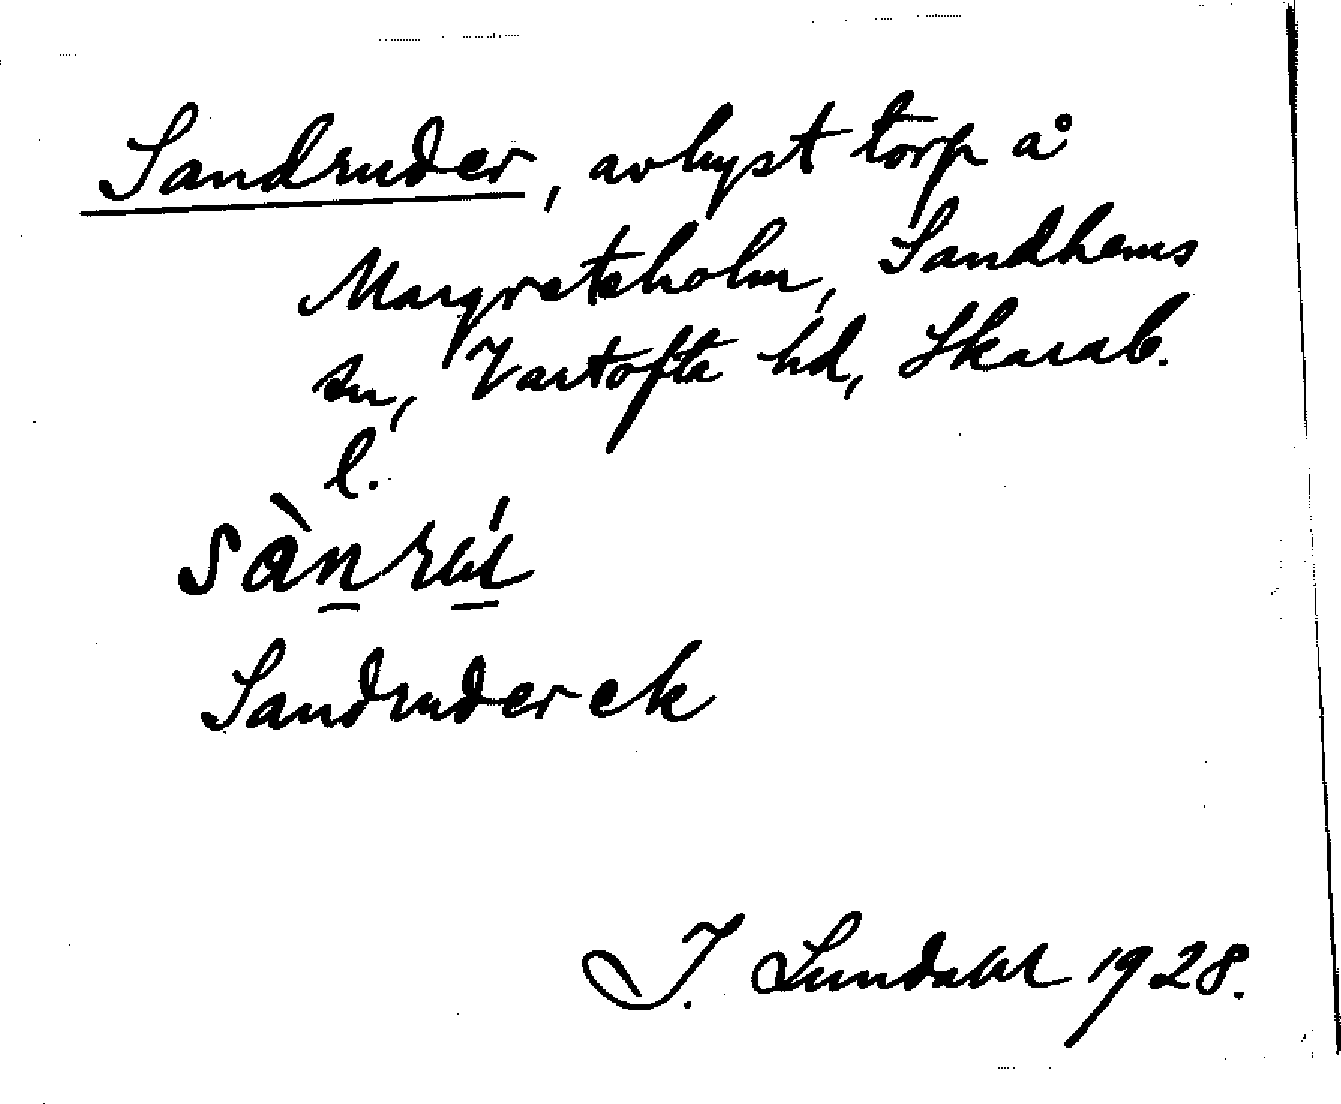 Sandruder, avhyst torp å
Margreteholm, Sandhems
sn, Vartofta hd, Skarab.
l.
Sandruder ek
I. Lundahl 1928.